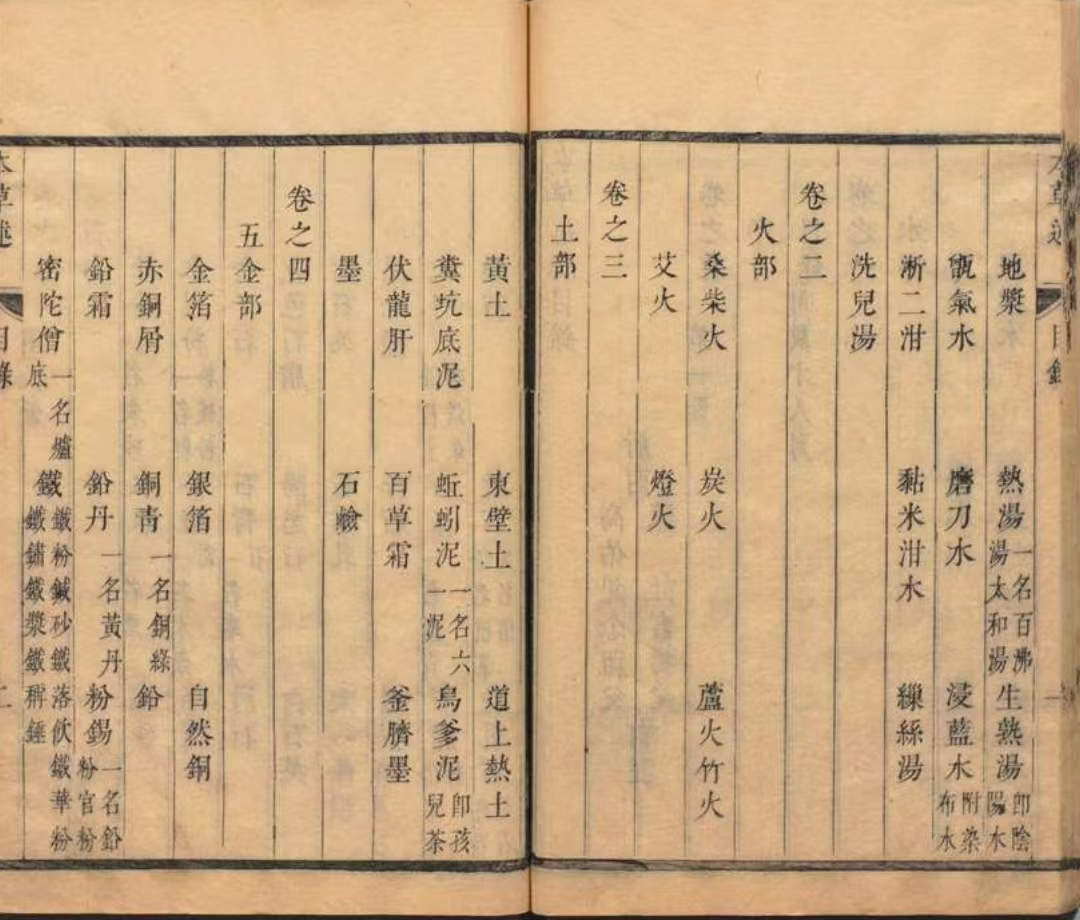 地漿 熱湯一名百沸湯太和湯 生熟湯即陰陽水
甑氣水 磨刀水 浸藍水附染布水
淅二泔 黏米泔水 繅絲湯
洗兒湯
卷之二
火部
桑柴火 炭火 蘆火竹火
艾火 燈火
卷之三
土部
黃土 東壁土 道上熱土
糞坑底泥 蚯蚓泥一名六一泥 烏爹泥即孩兒茶
伏龍肝 百草霜 釜臍墨
墨 石鹼
卷之四
五金部
金箔 銀箔 自然銅
赤銅屑 銅青一名銅綠 鉛
鉛霜 鉛丹一名黃丹 粉錫一名鉛粉官粉
密陀僧一名爐底 鐵鐵粉鍼砂鐵落飲鐵華粉鐵鏽鐵漿鐵稱錘
本草述 目錄